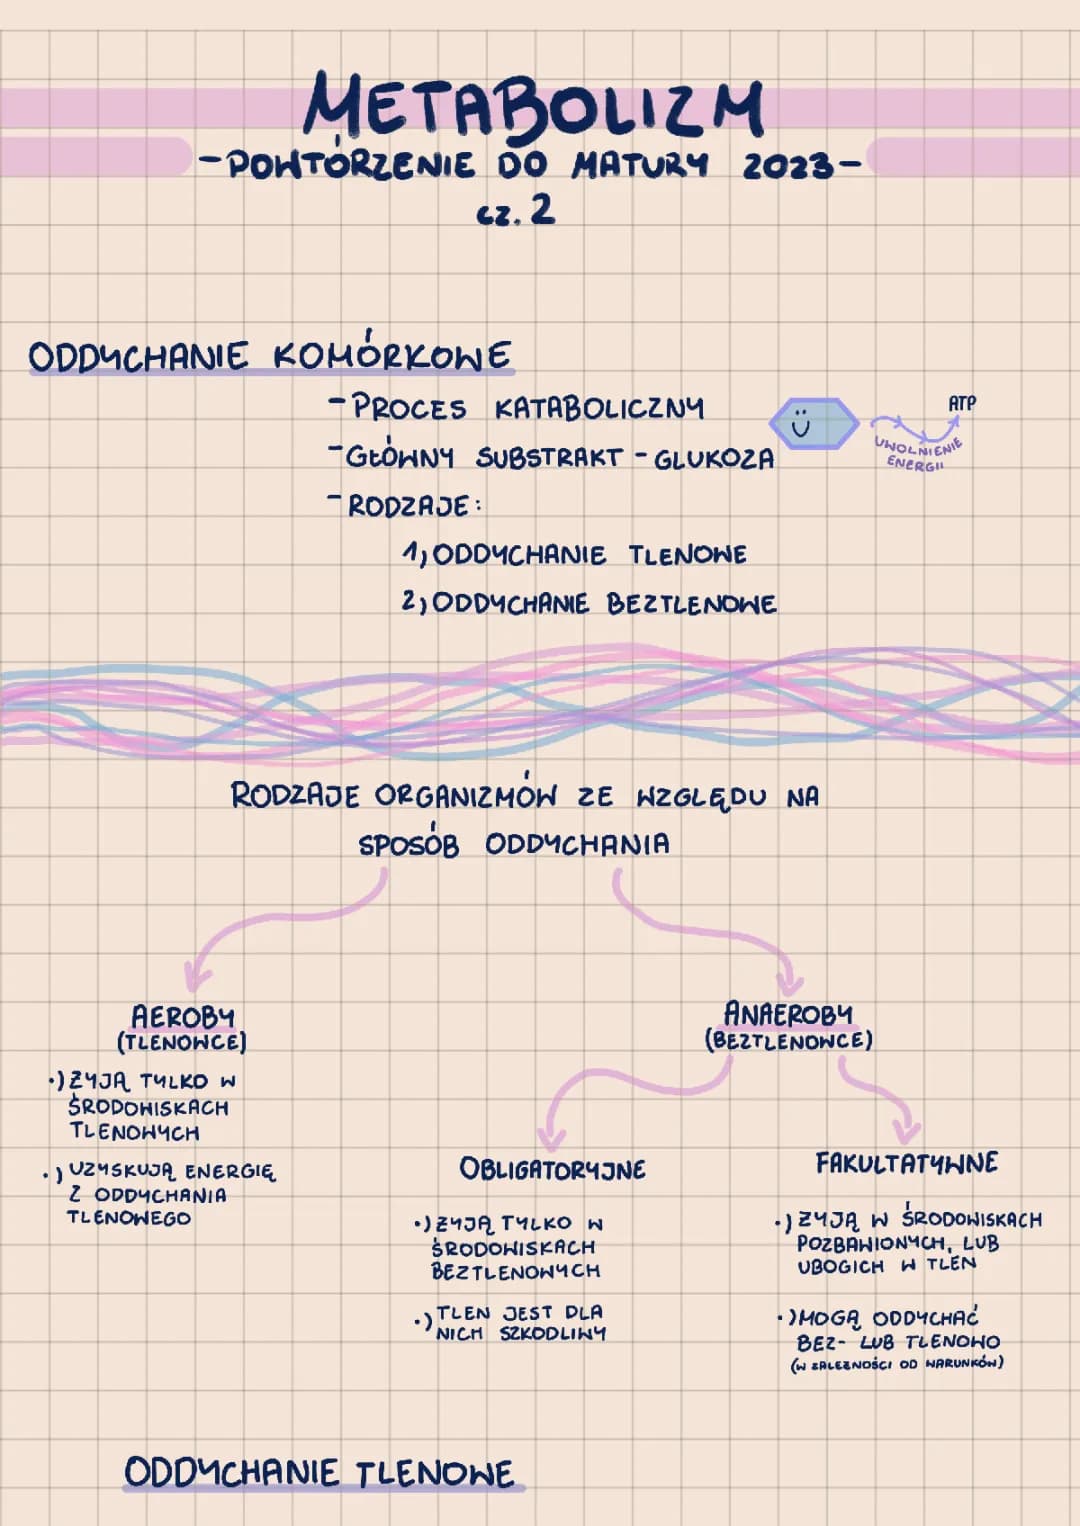 METABOLIZM
-POWTÓRZENIE DO MATURY 2023-
CZ. 2
ODDYCHANIE KOMÓRKOWE
- PROCES KATABOLICZNY
- GŁÓWNY SUBSTRAKT - GLUKOZA
ATP
UWOLNIENIE
ENERGII
- RODZAJE:
1) ODDYCHANIE TLENOWE
2) ODDYCHANIE BEZTLENOWE
RODZAJE ORGANIZMÓW ZE WZGLĘDU NA
SPOSÓB ODDYCHANIA
AEROBY
(TLENOWCE)
•) ŻYJĄ TYLKO W
ŚRODOWISKACH
TLENOWYCH
•) UZYSKUJĄ ENERGIĘ
Z ODDYCHANIA
TLENOWEGO
ANAEROBY
(BEZTLENOWCE)
OBLIGATORYJNE
•) ŻYJĄ TYLKO W
ŚRODOWISKACH
BEZTLENOWYCH
•) TLEN JEST DLA
NICH SZKODLIWY
FAKULTATYWNE
•) ŻYJĄ W ŚRODOWISKACH
POZBAWIONYCH, LUB
UBOGICH W TLEN
•) MOGĄ ODDYCHAĆ
BEZ- LUB TLENOWO
(W ZALEŻNOŚCI OD WARUNKÓW)
ODDYCHANIE TLENOWE